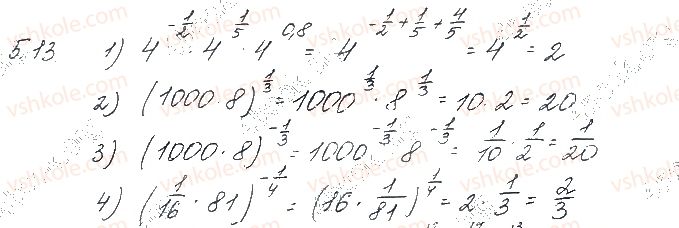 5.13 1) 4^{-\frac{1}{2}} \cdot 4^{\frac{1}{5}} \cdot 4^{0,8} = 4^{-\frac{1}{2}+\frac{1}{5}+\frac{4}{5}} = 4^{\frac{1}{2}} = 2
2) (1000 \cdot 8)^{\frac{1}{3}} = 1000^{\frac{1}{3}} \cdot 8^{\frac{1}{3}} = 10 \cdot 2 = 20
3) (1000 \cdot 8)^{-\frac{1}{3}} = 1000^{-\frac{1}{3}} \cdot 8^{-\frac{1}{3}} = \frac{1}{10} \cdot \frac{1}{2} = \frac{1}{20}
4) (\frac{1}{16} \cdot 81)^{-\frac{1}{4}} = (16 \cdot \frac{1}{81})^{\frac{1}{4}} = 2 \cdot \frac{1}{3} = \frac{2}{3}